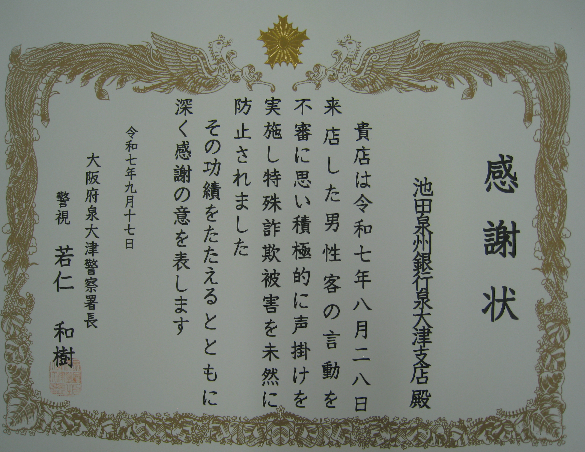 感謝状
池田泉州銀行泉大津支店殿
貴店は令和七年八月二八日
来店した男性客の言動を
不審に思い積極的に声掛けを
実施し特殊詐欺被害を未然に
防止されました
その功績をたたえるとともに
深く感謝の意を表します
令和七年九月十七日
大阪府泉大津警察署長
警視 若仁 和樹